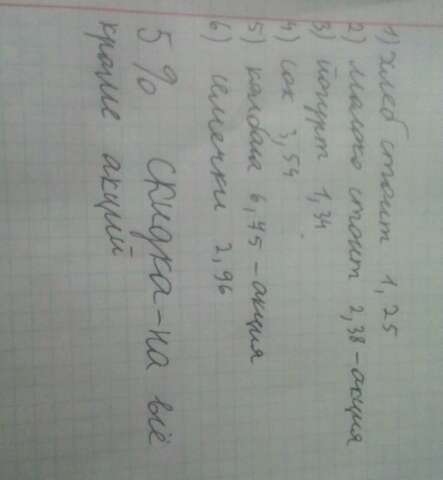 1) хлеб стоит 1,25
2) малако стоит 2,38 - акция
3) йогурт 1,34
4) сок 3,54
5) калбаса 6,75 - акция
6) семечки 2,96
5% скидка - на всё
кроме акций